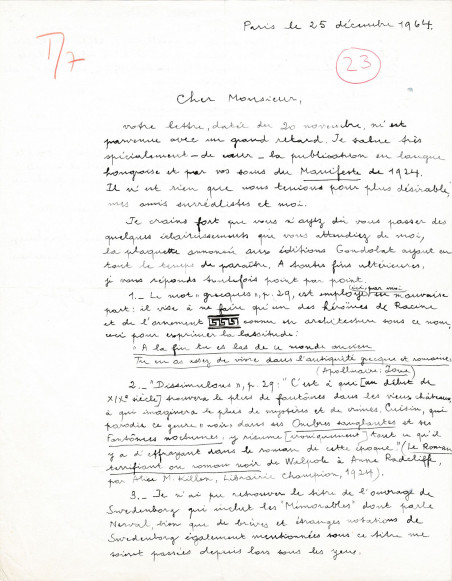 Paris le 25 décembre 1964.
T/7
23
Cher Monsieur,
votre lettre, datée du 20 novembre, m'est
parvenue avec un grand retard. Je salue très
spécialement – de cœur – la publication en langue
hongroise et par vos soins du Manifeste de 1924.
Il n'est rien que nous tenions pour plus désirable,
mes amis surréalistes et moi.
Je crains fort que vous n'ayez dû vous passer des
quelques éclaircissements que vous attendiez de moi,
la plaquette annoncée aux éditions Gondolat ayant eu
tout le temps de paraître. A toutes fins ultérieures,
je vous réponds toutefois point par point.
1._ Le mot "grecques", p. 29, est employé ici, par moi en mauvaise
part : il vise à ne faire qu'un des héroïnes de Racine
et de l'ornement connu en architecture sous ce nom,
ceci pour exprimer la lassitude :
"A la fin tu es las de ce monde ancien
Tu en as assez de vivre dans l'antiquité grecque et romaine"
(Apollinaire : Zone)
2._ "Dissimulons", p. 29 : "C'est à qui [au début du
XIXe siècle] trouvera le plus de fantômes dans les vieux châteaux,
à qui imaginera le plus de mystères et de crimes. Cuisin, qui
parodie ce genre "noir" dans ses Ombres sanglantes et ses
Fantômes nocturnes, y résume [ironiquement] tout ce qu'il
y a d'effrayant dans le roman de cette époque." (Le Roman
terrifiant ou roman noir de Walpole à Anne Radcliffe,
par Alice M. Killen, Librairie Champion, 1924).
3._ Je n'ai pu retrouver le titre de l'ouvrage de
Swedenborg qui inclut les "Mémorables" dont parle
Nerval, bien que de brèves et étranges notations de
Swedenborg également mentionnées sous ce titre me
soient passées depuis lors sous les yeux.